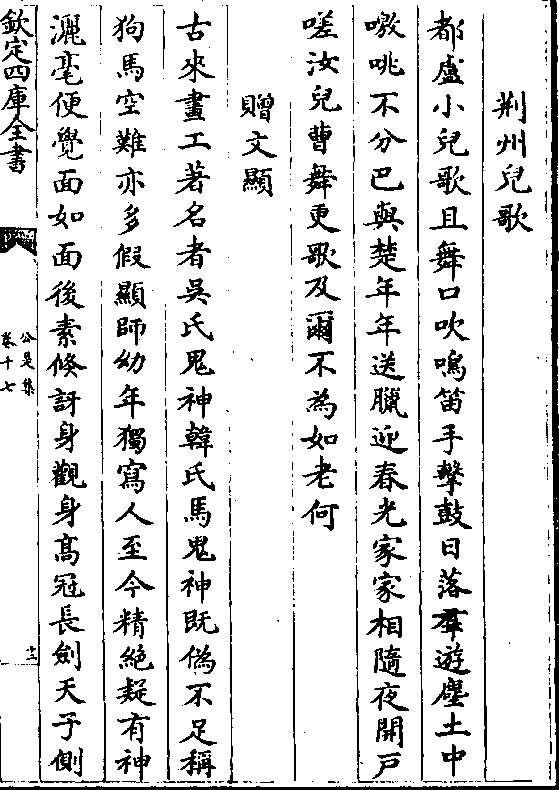 荆州兒歌
都盧小兒歌且舞口吹鳴笛手擊鼓日落羣遊塵土中
噭咷不分巴與楚年年送臘迎春光家家相隨夜開戸
嗟汝兒曹舞更歌及爾不為如老何
贈文顯
古來畫工著名者吳氏鬼神韓氏馬鬼神既偽不足稱
狗馬空難亦多假顯師幼年獨寫人至今精絶疑有神
灑毫便覺面如面後素倐訝身觀身髙冠長劍天子側
欽定四庫全書
公是集
卷十七
十二